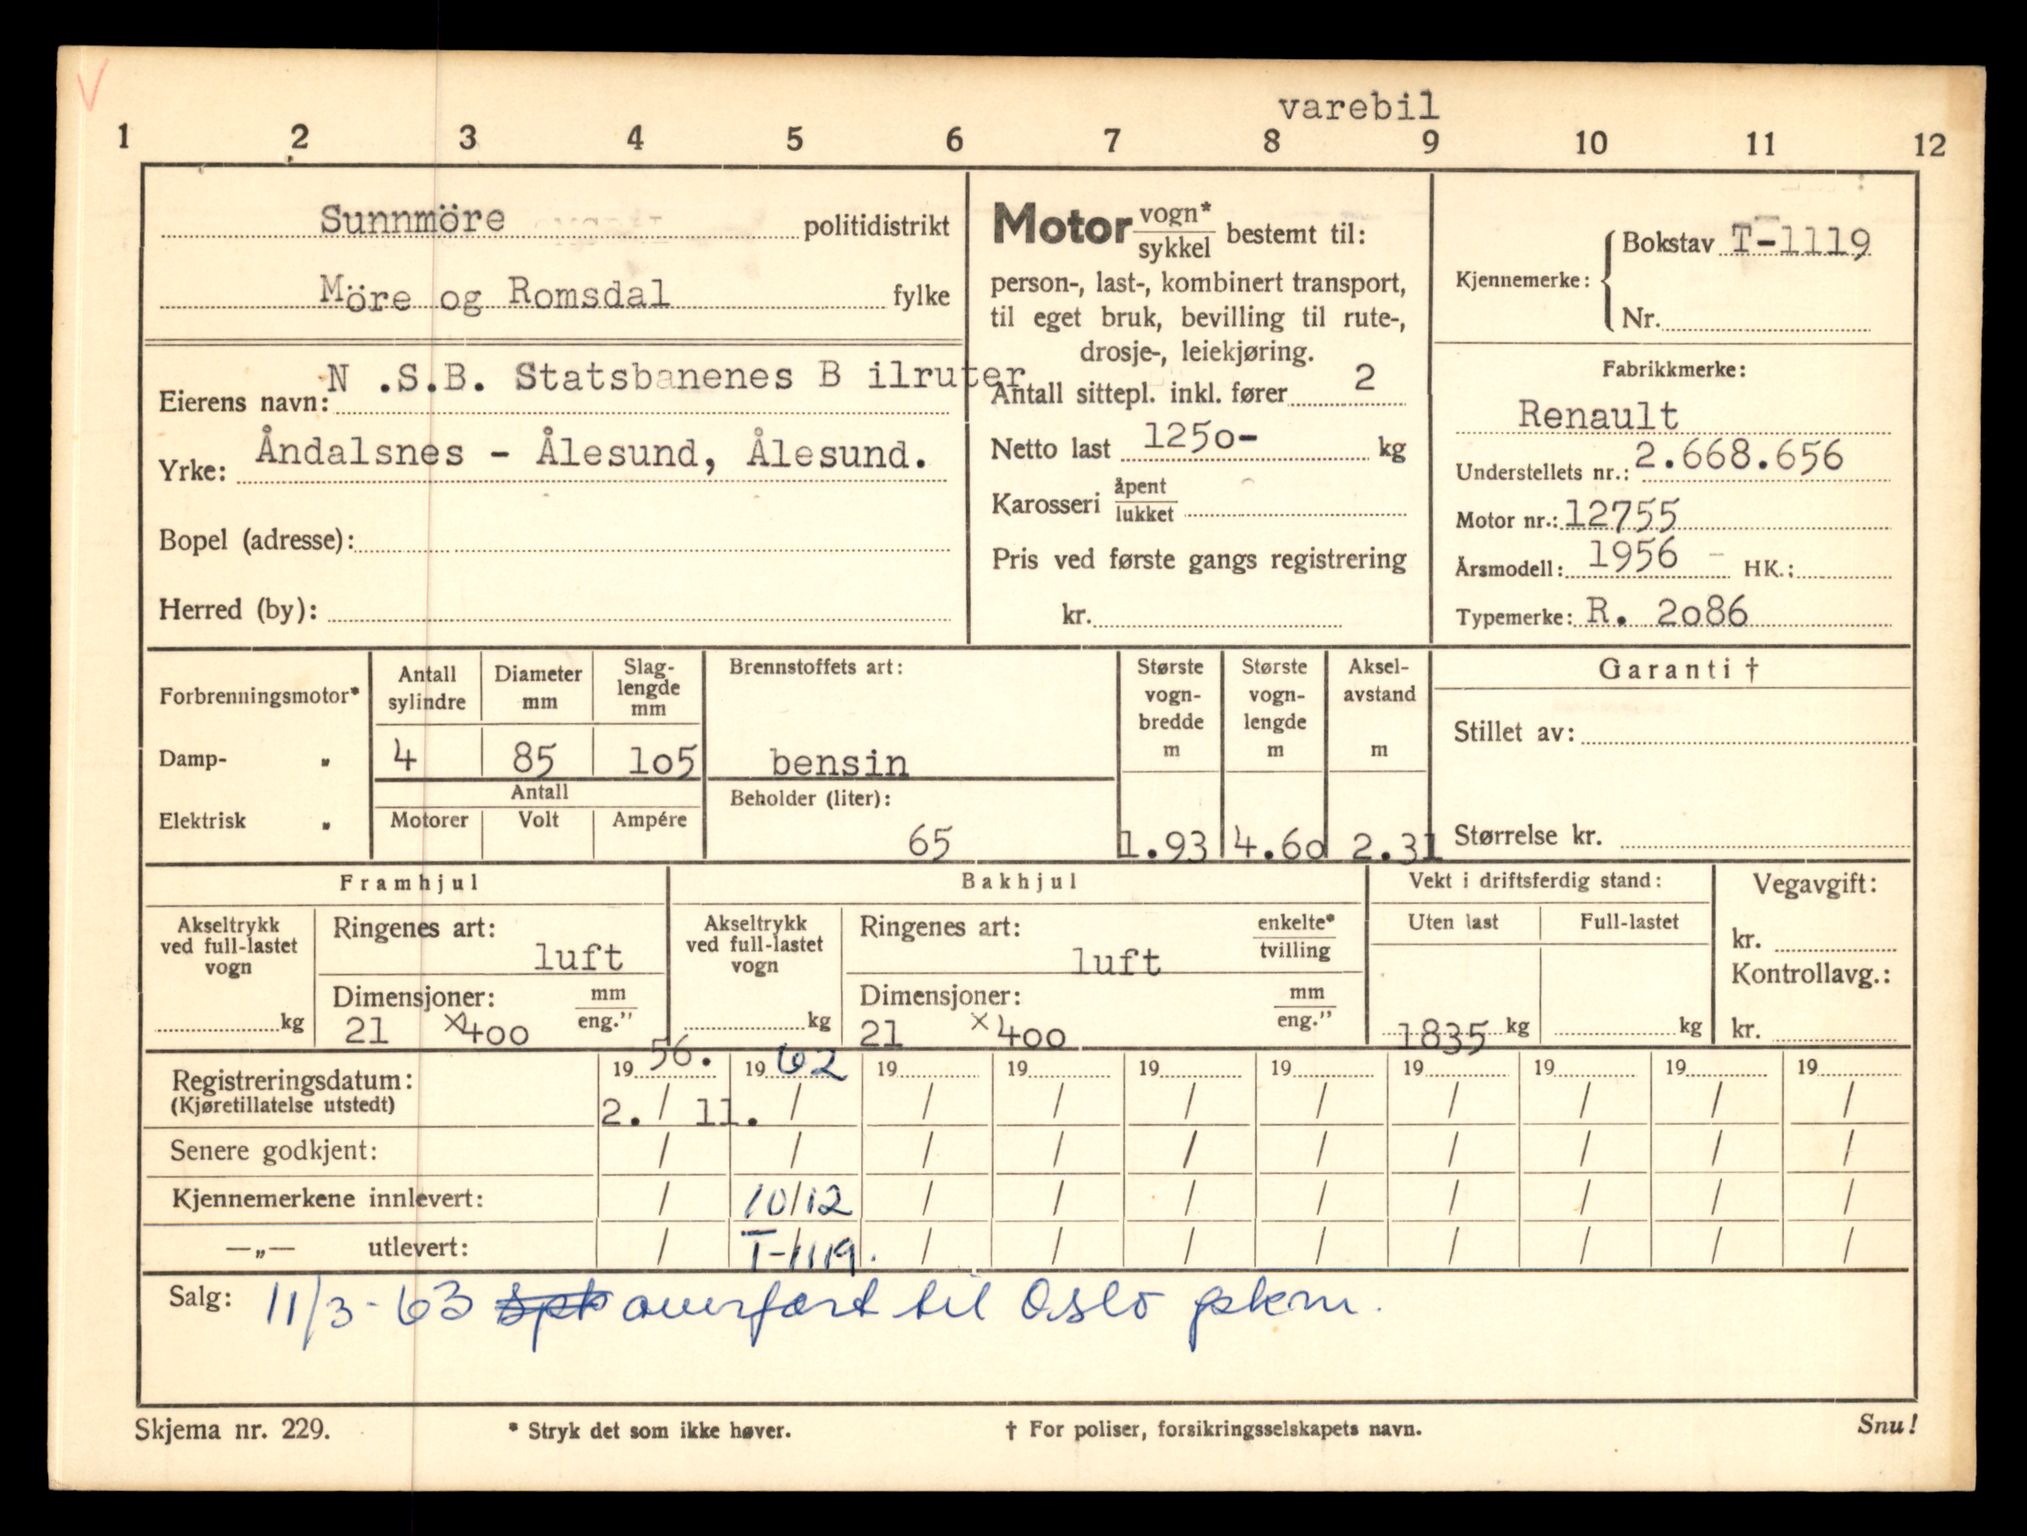 varebil
1 2 3 4 5 6 7 8 9 10 11 12
Sunnmöre politidistrikt
Möre og Romsdal fylke
Eierens navn: N .S.B. Statsbanenes B ilruter
Yrke: Åndalsnes - Ålesund, Ålesund.
Bopel (adresse):
Herred (by):
Motor vogn* / sykkel bestemt til:
person-, last-, kombinert transport,
til eget bruk, bevilling til rute-,
drosje-, leiekjøring.
Antall sittepl. inkl. fører 2
Netto last 1250- kg
Karosseri åpent / lukket
Pris ved første gangs registrering
kr.
Kjennemerke: Bokstav T-1119
Nr.
Fabrikkmerke:
Renault
Understellets nr.: 2.668.656
Motor nr.: 12755
Årsmodell: 1956 - HK.:
Typemerke: R. 2o86
Forbrenningsmotor*
Damp- „
Elektrisk „
Antall sylindre
Diameter mm
Slag-lengde mm
4 85 1o5
Antall
Motorer Volt Ampére
Brennstoffets art:
bensin
Beholder (liter):
65
Største vogn-bredde m
1.93
Største vogn-lengde m
4.6o
Aksel-avstand m
2.31
Garanti †
Stillet av:
Størrelse kr.
Framhjul
Akseltrykk
ved full-lastet
vogn
kg
Ringenes art:
luft
Dimensjoner: mm / eng."
21 × 4oo
Bakhjul
Akseltrykk
ved full-lastet
vogn
kg
Ringenes art: enkelte* / tvilling
luft
Dimensjoner: mm / eng."
21 × 4oo
Vekt i driftsferdig stand:
Uten last Full-lastet
1835 kg kg
Vegavgift:
kr.
Kontrollavg.:
kr.
Registreringsdatum: 19 56. 19 62 19 19 19 19 19 19 19 19
(Kjøretillatelse utstedt) 2. / 11. / / / / / / / / /
Senere godkjent: / / / / / / / / / /
Kjennemerkene innlevert: / 10/12 / / / / / / / /
—„— utlevert: / T-1119. / / / / / / / /
Salg: 11/3-63 spk overført til Oslo pkm.
Skjema nr. 229. * Stryk det som ikke høver. † For poliser, forsikringsselskapets navn. Snu!